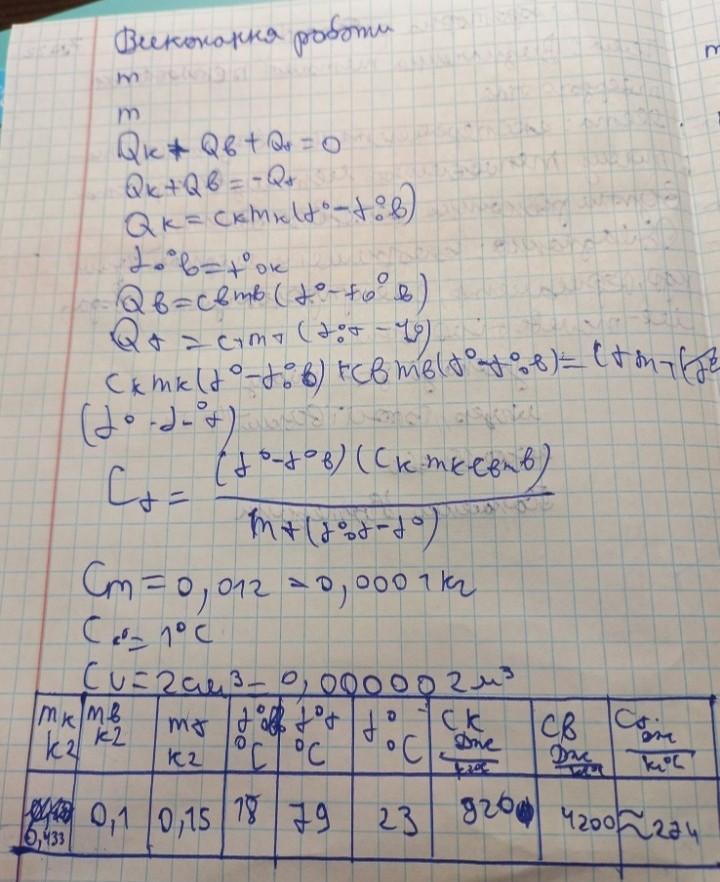 Виконання роботи
m
m
Qк + Qв + Qт = 0
Qк + Qв = -Qт
Qк = cкmк(t° - t₀°в)
t₀°в = t°ок
Qв = cвmв(t° - t₀°в)
Qт = cтmт(t₀°т - t°)
cкmк(t° - t₀°в) + cвmв(t° - t₀°в) = cтmт
(t° - t°т)
Cт = (t° - t°в)(cкmкcвmв)
mт(t₀°т - t°)
Cm = 0,01г = 0,0001кг
Ct° = 1°C
Cv = 2см³ = 0,000002м³
mк кг mв кг mт кг t°в °C t°т °C t° °C cк Дж кг°C cв Дж кг°C cт Дж кг°C
0,433 0,1 0,15 18 79 23 920 4200 ≈274